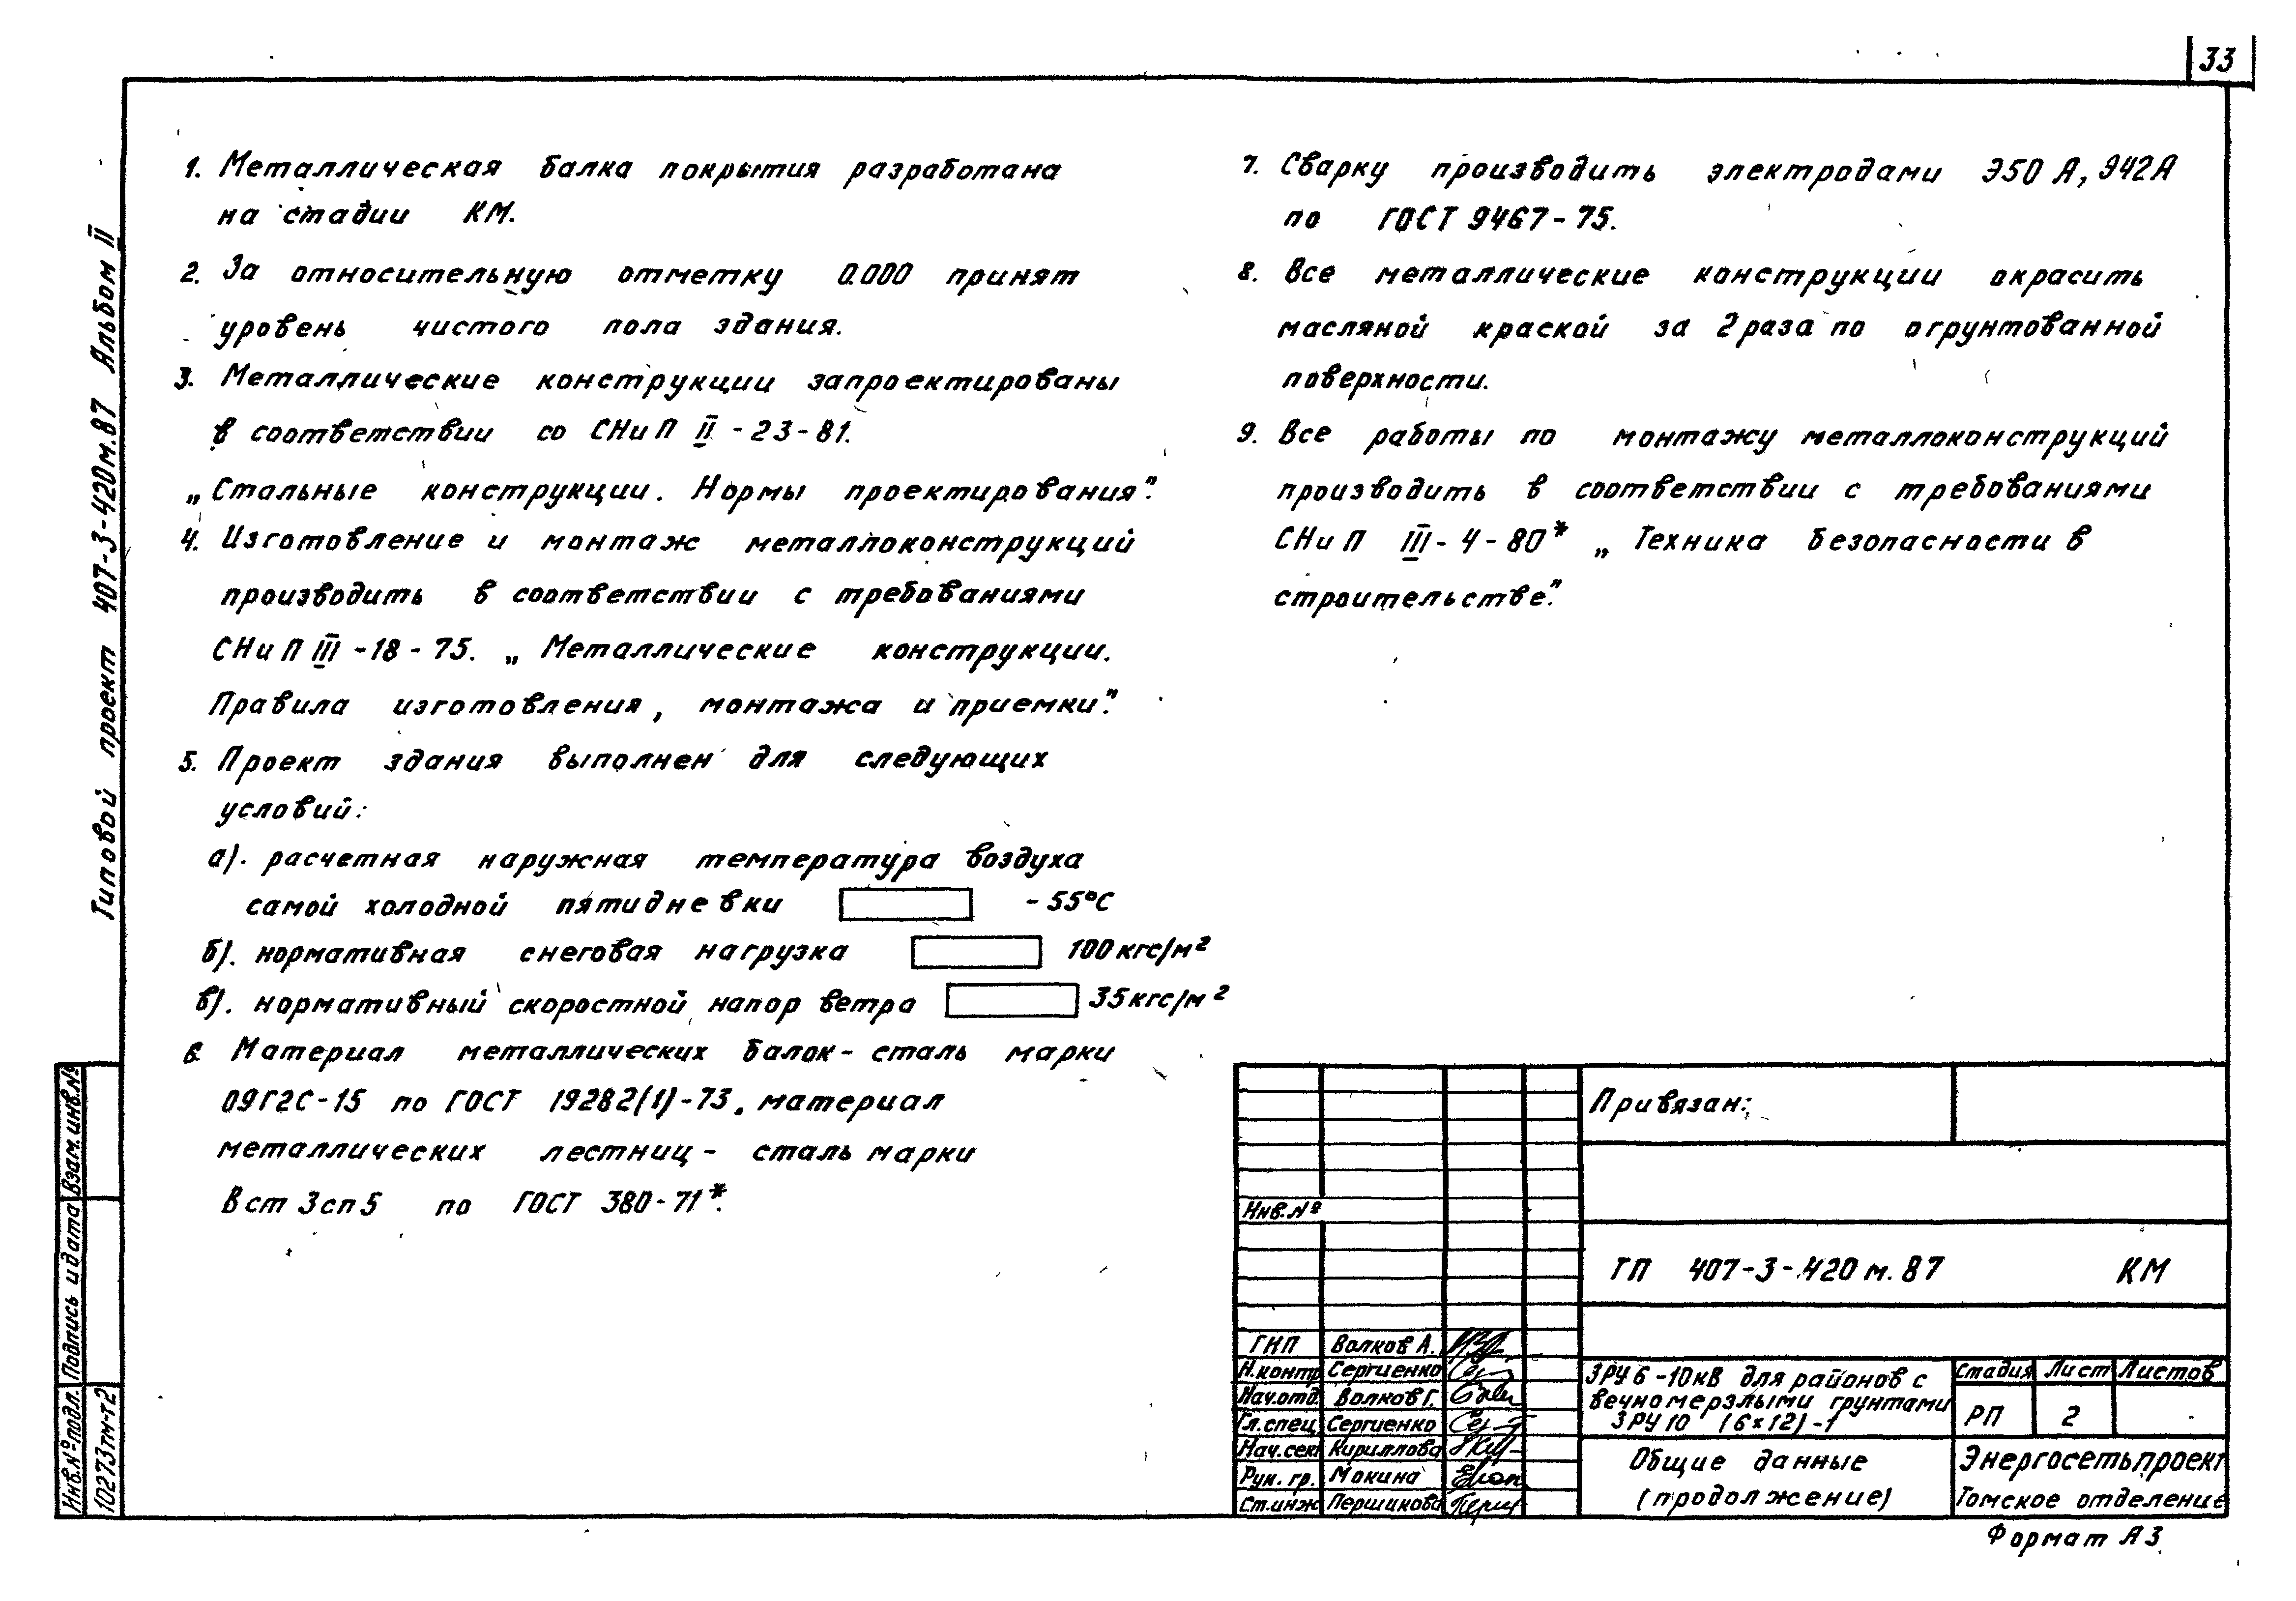 33
Типовой проект 407-3-420м.87 Альбом II
1. Металлическая балка покрытия разработана
на стадии КМ.
2. За относительную отметку 0.000 принят
уровень чистого пола здания.
3. Металлические конструкции запроектированы
в соответствии со СНиП II - 23 - 81.
„Стальные конструкции. Нормы проектирования".
4. Изготовление и монтаж металлоконструкций
производить в соответствии с требованиями
СНиП III - 18 - 75. „Металлические конструкции.
Правила изготовления, монтажа и приемки".
5. Проект здания выполнен для следующих
условий:
а). расчетная наружная температура воздуха
самой холодной пятидневки - 55°С
б). нормативная снеговая нагрузка 100 кгс/м²
в). нормативный скоростной напор ветра 35 кгс/м²
6. Материал металлических балок - сталь марки
09Г2С-15 по ГОСТ 19282(1)-73, материал
металлических лестниц - сталь марки
Вст 3сп5 по ГОСТ 380-71*.
7. Сварку производить электродами Э50А, Э42А
по ГОСТ 9467-75.
8. Все металлические конструкции окрасить
масляной краской за 2 раза по огрунтованной
поверхности.
9. Все работы по монтажу металлоконструкций
производить в соответствии с требованиями
СНиП III - 4 - 80* „Техника безопасности в
строительстве".
Взам.инв.№
Подпись и дата
Инв.№подл.
10273тм-т2
Привязан:
Инв.№
ТП 407-3-420м.87 КМ
ГИП Волков А.
Н.контр Сергиенко
Нач.отд. Волков Г.
Гл.спец. Сергиенко
Нач.сек Кириллова
Рук. гр. Мокина
Ст.инж Першикова
ЗРУ 6-10кВ для районов с
вечномерзлыми грунтами
ЗРУ 10 (6×12)-1
Стадия Лист Листов
РП 2
Общие данные
(продолжение)
Энергосетьпроект
Томское отделение
Формат А3